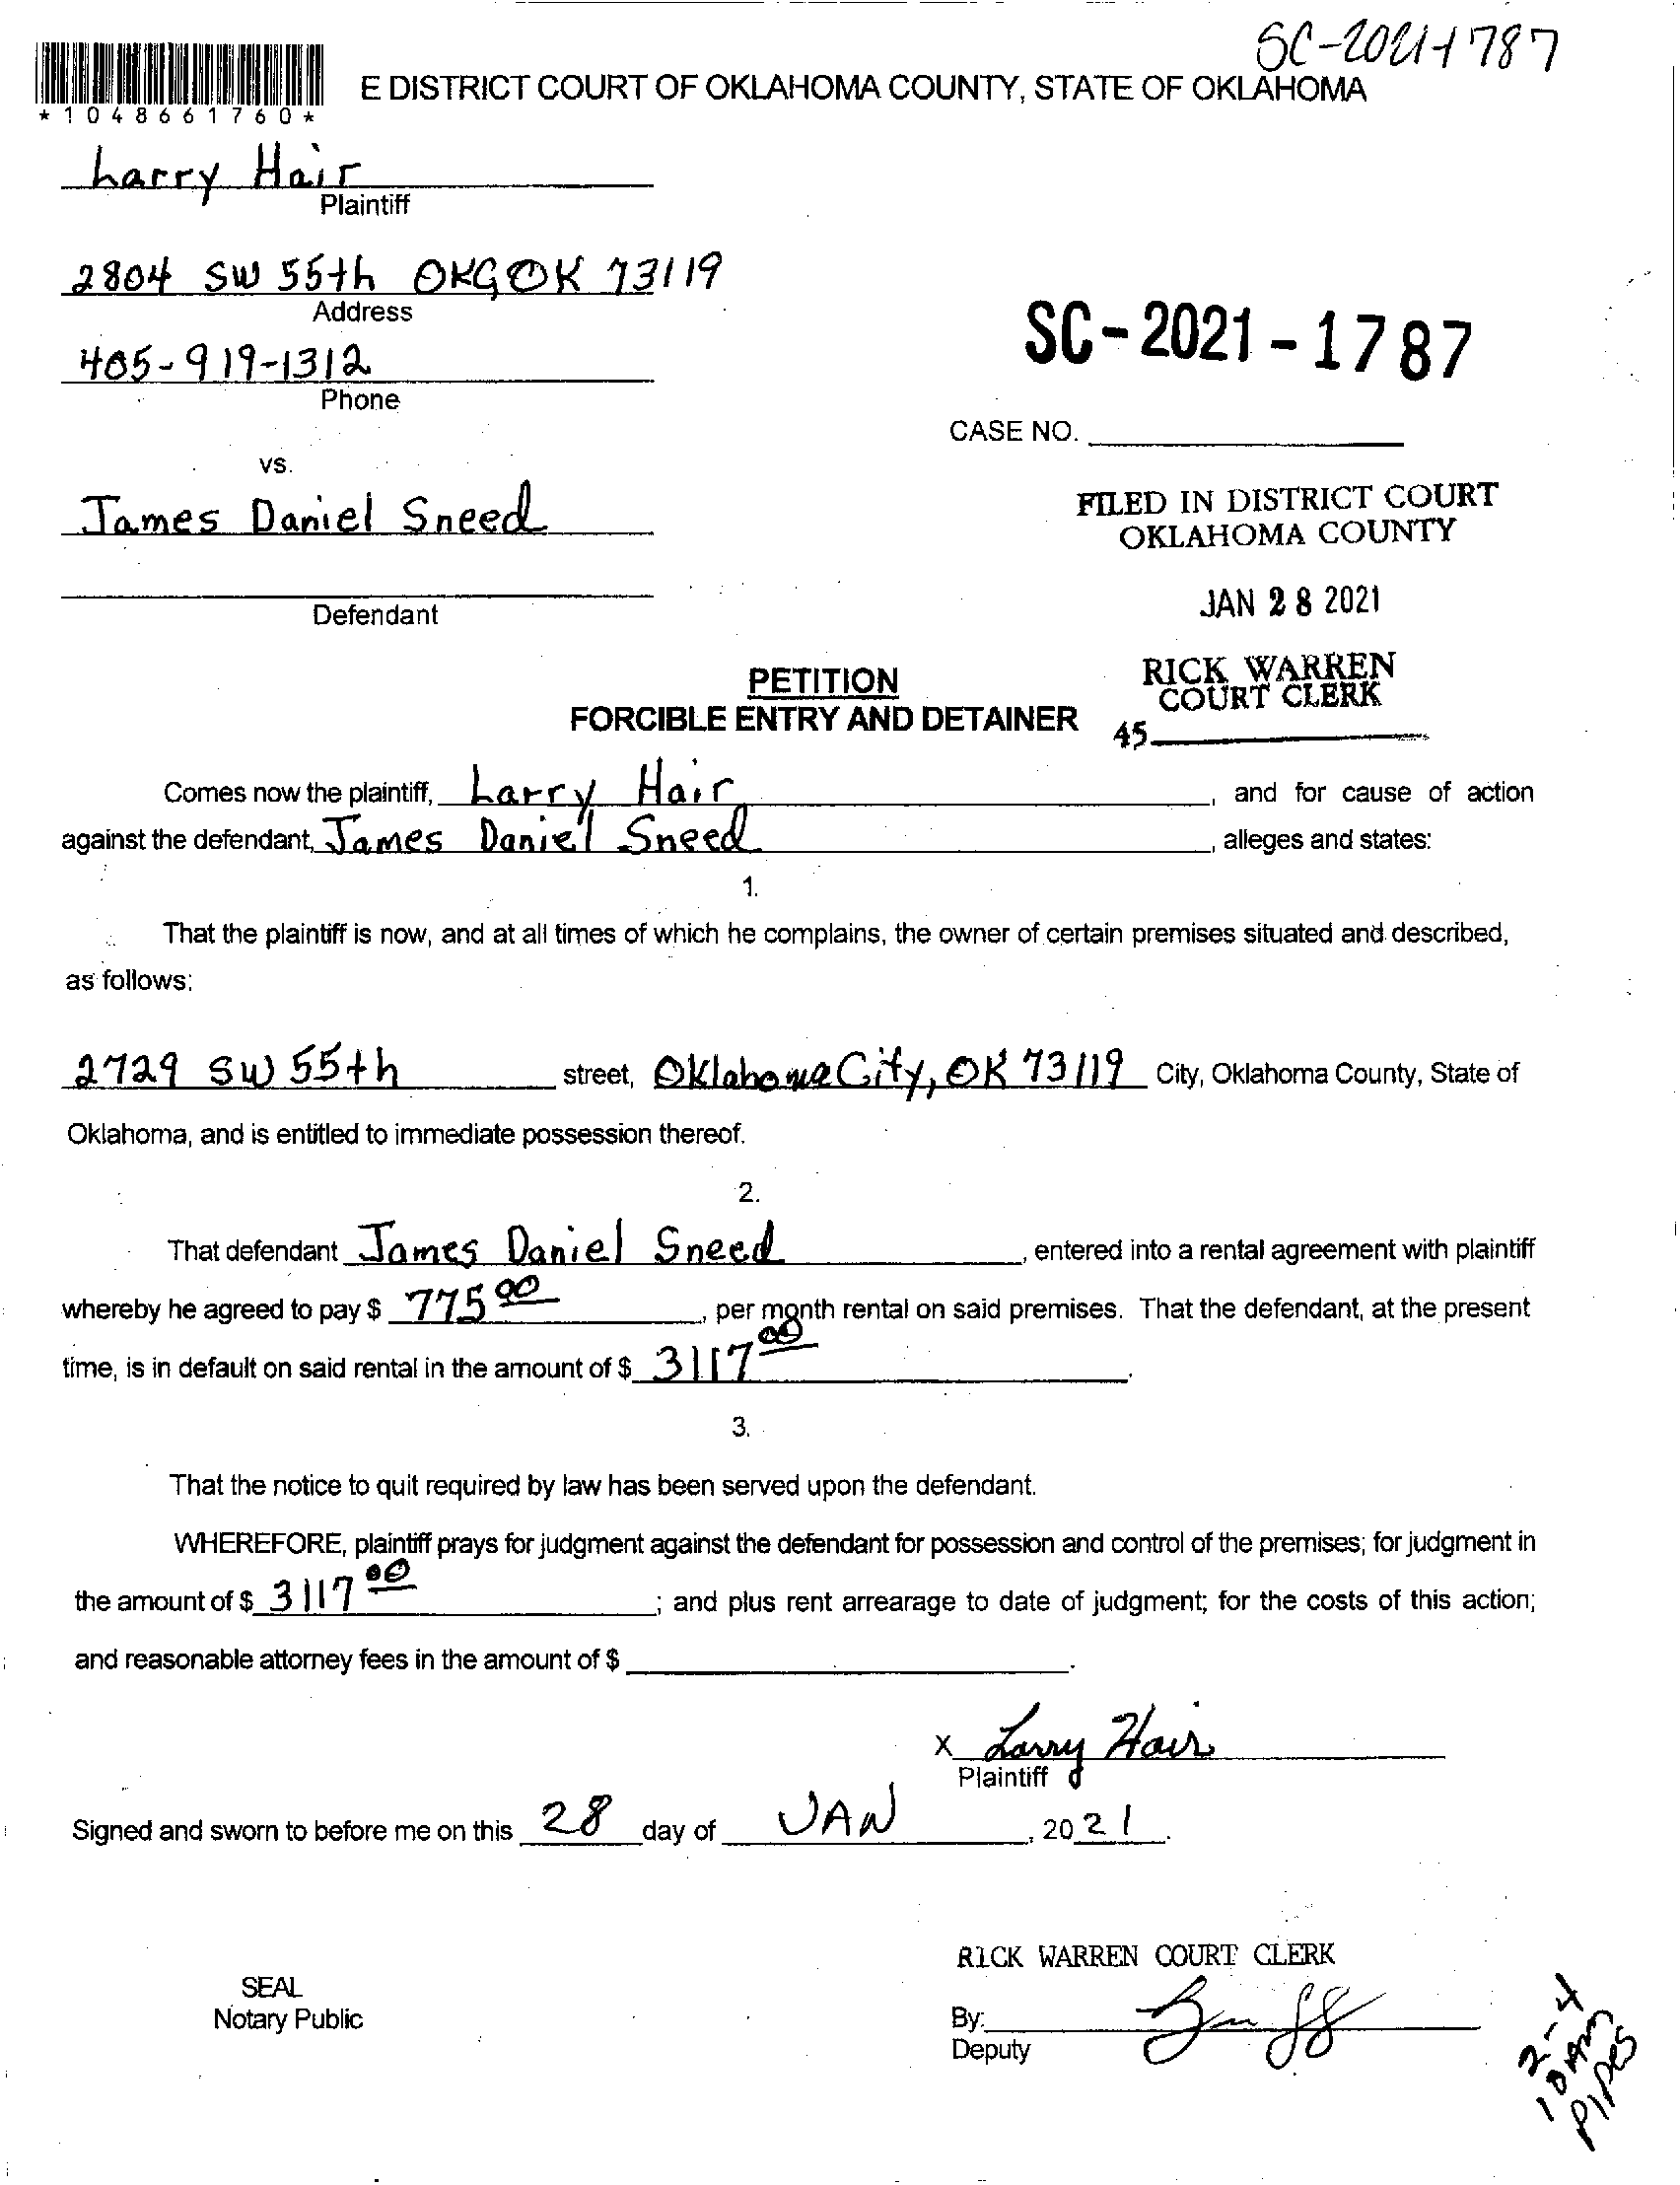 SC-2021-1787
E DISTRICT COURT OF OKLAHOMA COUNTY, STATE OF OKLAHOMA
*1048661760*
Larry Hair
Plaintiff
2804 SW 55th OKC OK 73119
Address
405-919-1312
Phone
SC-2021-1787
CASE NO.
vs.
James Daniel Sneed
Defendant
FILED IN DISTRICT COURT
OKLAHOMA COUNTY
JAN 28 2021
RICK WARREN
COURT CLERK
45
PETITION
FORCIBLE ENTRY AND DETAINER
Comes now the plaintiff, Larry Hair, and for cause of action
against the defendant, James Daniel Sneed, alleges and states:
1.
That the plaintiff is now, and at all times of which he complains, the owner of certain premises situated and described,
as follows:
2729 SW 55th street, Oklahoma City, OK 73119 City, Oklahoma County, State of
Oklahoma, and is entitled to immediate possession thereof.
2.
That defendant James Daniel Sneed, entered into a rental agreement with plaintiff
whereby he agreed to pay $ 775 00, per month rental on said premises. That the defendant, at the present
time, is in default on said rental in the amount of $ 3117 00.
3.
That the notice to quit required by law has been served upon the defendant.
WHEREFORE, plaintiff prays for judgment against the defendant for possession and control of the premises; for judgment in
the amount of $ 3117 00; and plus rent arrearage to date of judgment; for the costs of this action;
and reasonable attorney fees in the amount of $ .
X Larry Hair
Plaintiff
Signed and sworn to before me on this 28 day of JAN, 2021.
RICK WARREN COURT CLERK
SEAL
Notary Public
By:
Deputy
2-4
10 Am
PIPES